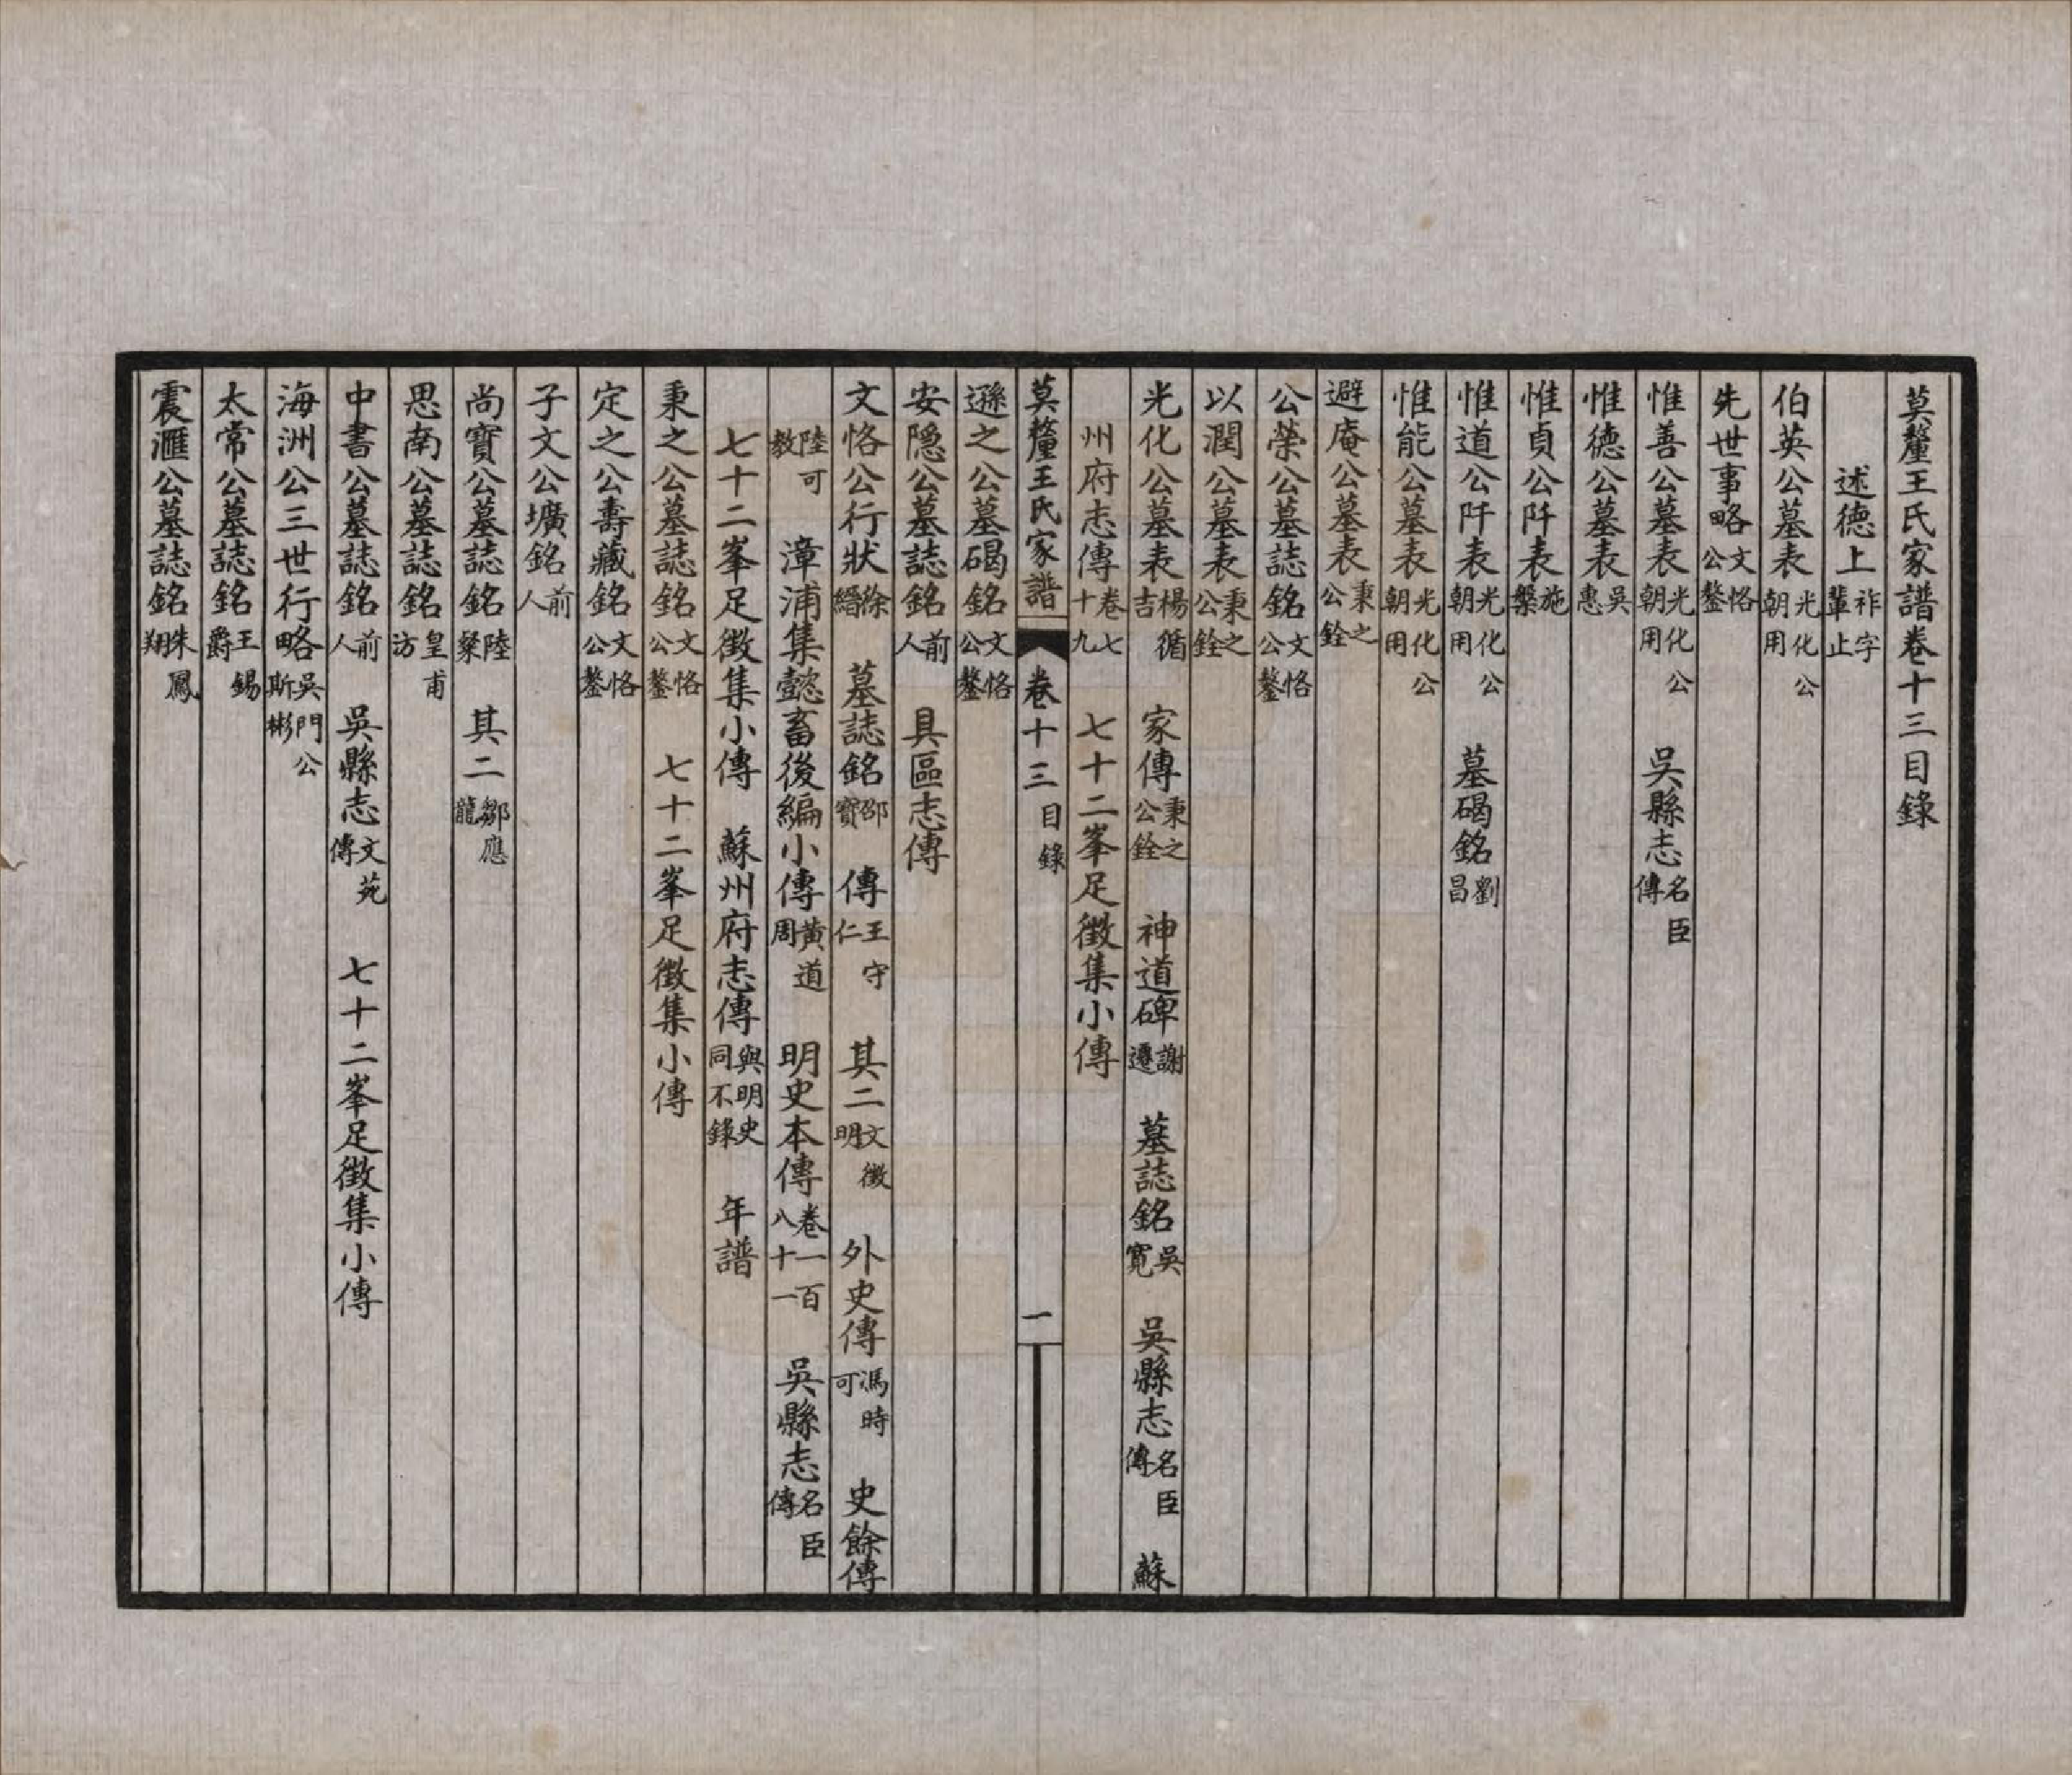 莫釐王氏家譜卷十三目錄
述德上祚字輩止
伯英公墓表光化公朝用
先世事略文恪公鏊
惟善公墓表光化公朝用　吳縣志名臣傳
惟德公墓表吳惠
惟貞公阡表施槃
惟道公阡表光化公朝用　墓碣銘劉昌
惟能公墓表光化公朝用
避庵公墓表秉之公銓
公榮公墓誌銘文恪公鏊
以潤公墓表秉之公銓
光化公墓表楊循吉　家傳秉之公銓　神道碑謝遷　墓誌銘吳寬　吳縣志名臣傳　蘇
州府志傳卷七十九　七十二峯足徵集小傳
莫釐王氏家譜　卷十三　目錄　一
遜之公墓碣銘文恪公鏊
安隱公墓誌銘前人　具區志傳
文恪公行狀徐縉　墓誌銘邵寶　傳王守仁　其二文徵明　外史傳馮時可　史餘傳
陸可教　漳浦集懿畜後編小傳黃道周　明史本傳卷一百八十一　吳縣志名臣傳
七十二峯足徵集小傳　蘇州府志傳與明史同不錄　年譜
秉之公墓誌銘文恪公鏊　七十二峯足徵集小傳
定之公壽藏銘文恪公鏊
子文公壙銘前人
尚寶公墓誌銘陸粲　其二鄒應龍
思南公墓誌銘皇甫汸
中書公墓誌銘前人　吳縣志文苑傳　七十二峯足徵集小傳
海洲公三世行略吳門公斯彬
太常公墓誌銘王錫爵
震滙公墓誌銘朱鳳翔